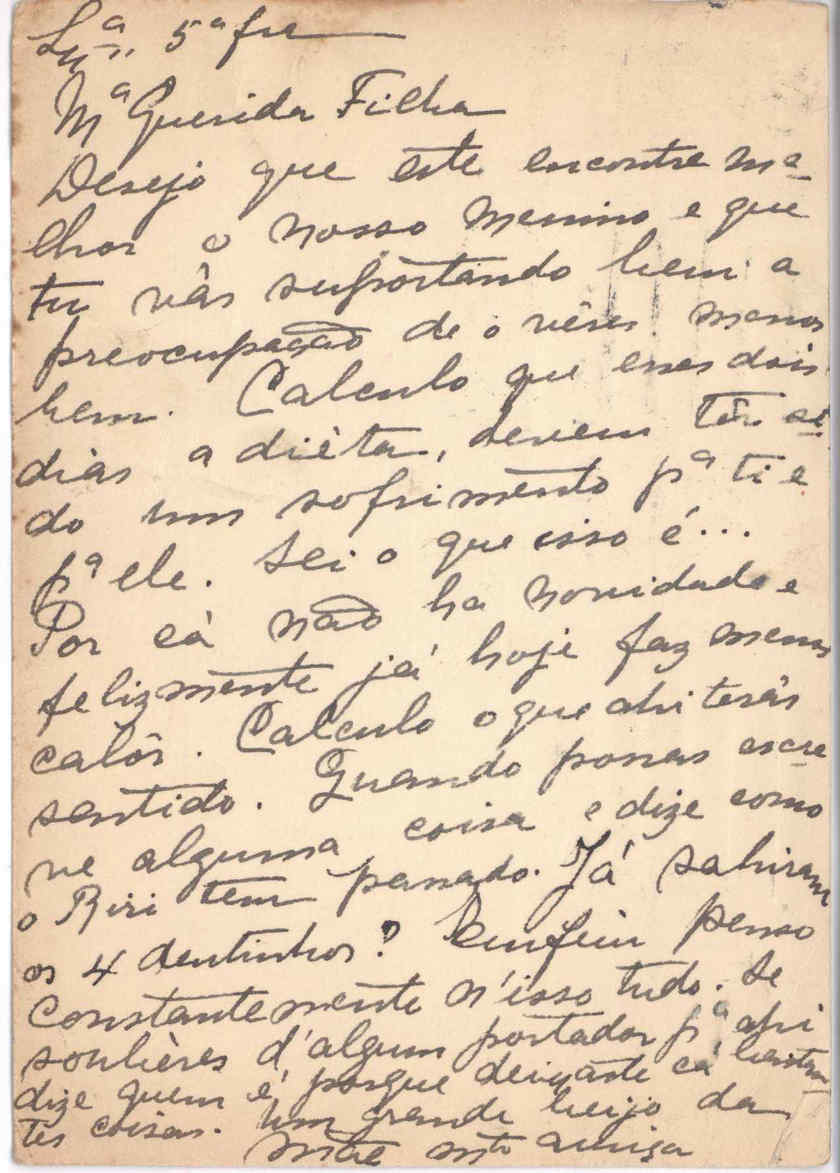 Lxª. 5ª fra
Mª Querida Filha
Desejo que este encontre me-
lhor o nosso menino e que
tu vás suportando bem a
preocupação de o vêres menos
bem. Calculo que esses dois
dias a diéta, devem têr si-
do um sofrimento pª ti e
pª ele. Sei o que isso é...
Por cá não ha novidade e
felizmente já hoje faz menos
calôr. Calculo o que ahi terás
sentido. Quando possas escre-
ve alguma coisa e dize como
o Riri tem passado. Já sahiram
os 4 dentinhos? Emfim penso
constantemente n'isso tudo. Se
soubéres d'algum portador pª ahi
dize quem é, porque deixaste cá bastan-
tes coisas. Um grande beijo da
mãe mtº amiga